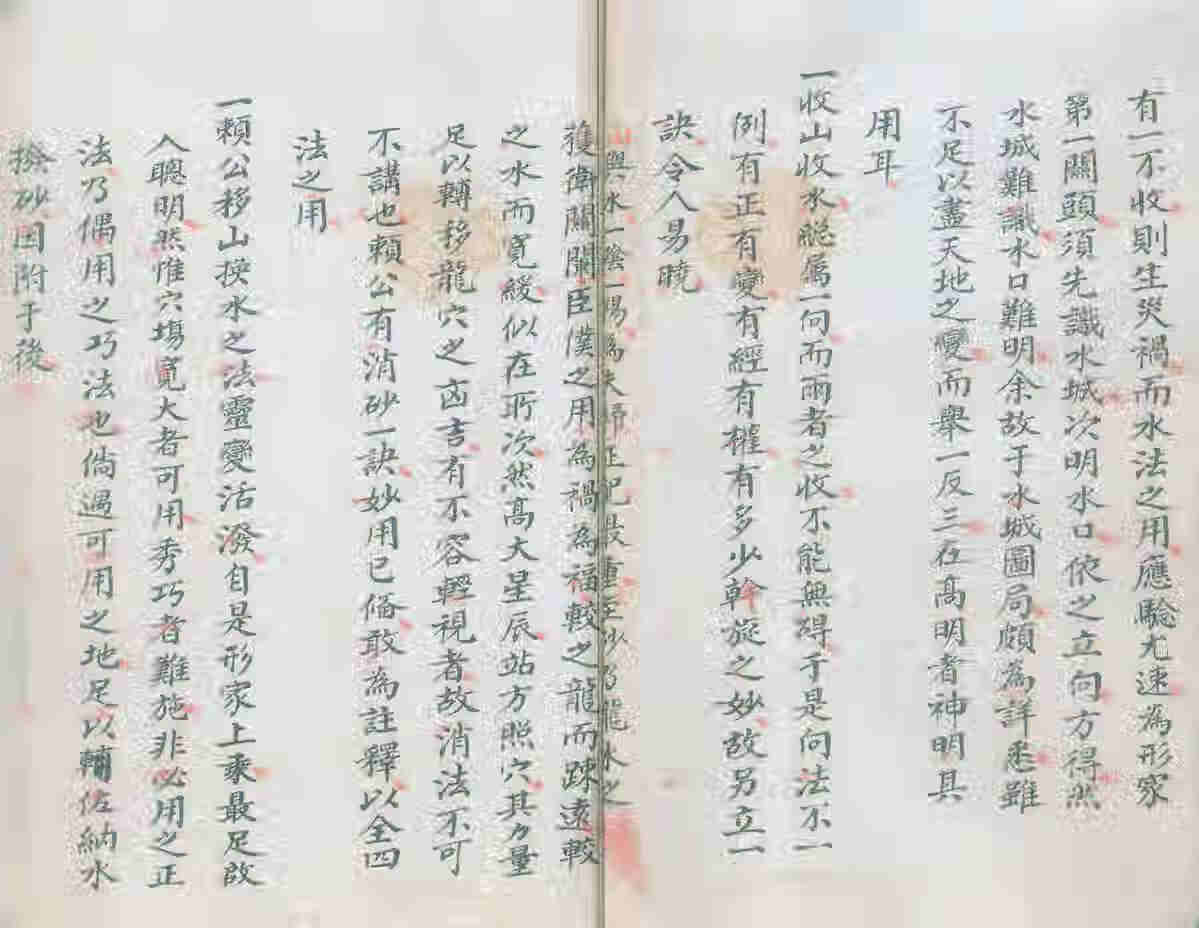 有一不收則生災禍而水法之用應驗尤速為形家
第一關頭須先識水城次明水口依之立向方得然
水城難識水口難明余故于水城圖局頗為詳悉雖
不足以盡天地之變而舉一反三在高明者神明其
用耳
一收山收水總屬一向而兩者之收不能無碍于是向法不一
例有正有變有經有權有多少幹旋之妙故另立一
訣令人易曉
山與水一陰一陽為夫婦正配最重至砂乃龍水之
護衛關闌臣僕之用為禍為福較之龍而踈遠較
之水而寬緩似在所次然高大星辰站方照穴其力量
足以轉移龍穴之凶吉有不容輕視者故消法不可
不講也賴公有消砂一訣妙用已備敢為註釋以全四
法之用
一賴公移山换水之法靈變活潑自是形家上乘最足啟
人聰明然惟穴塲寬大者可用秀巧者難施非必用之正
法乃偶用之巧法也倘遇可用之地足以輔佐納水
撥砂因附于後